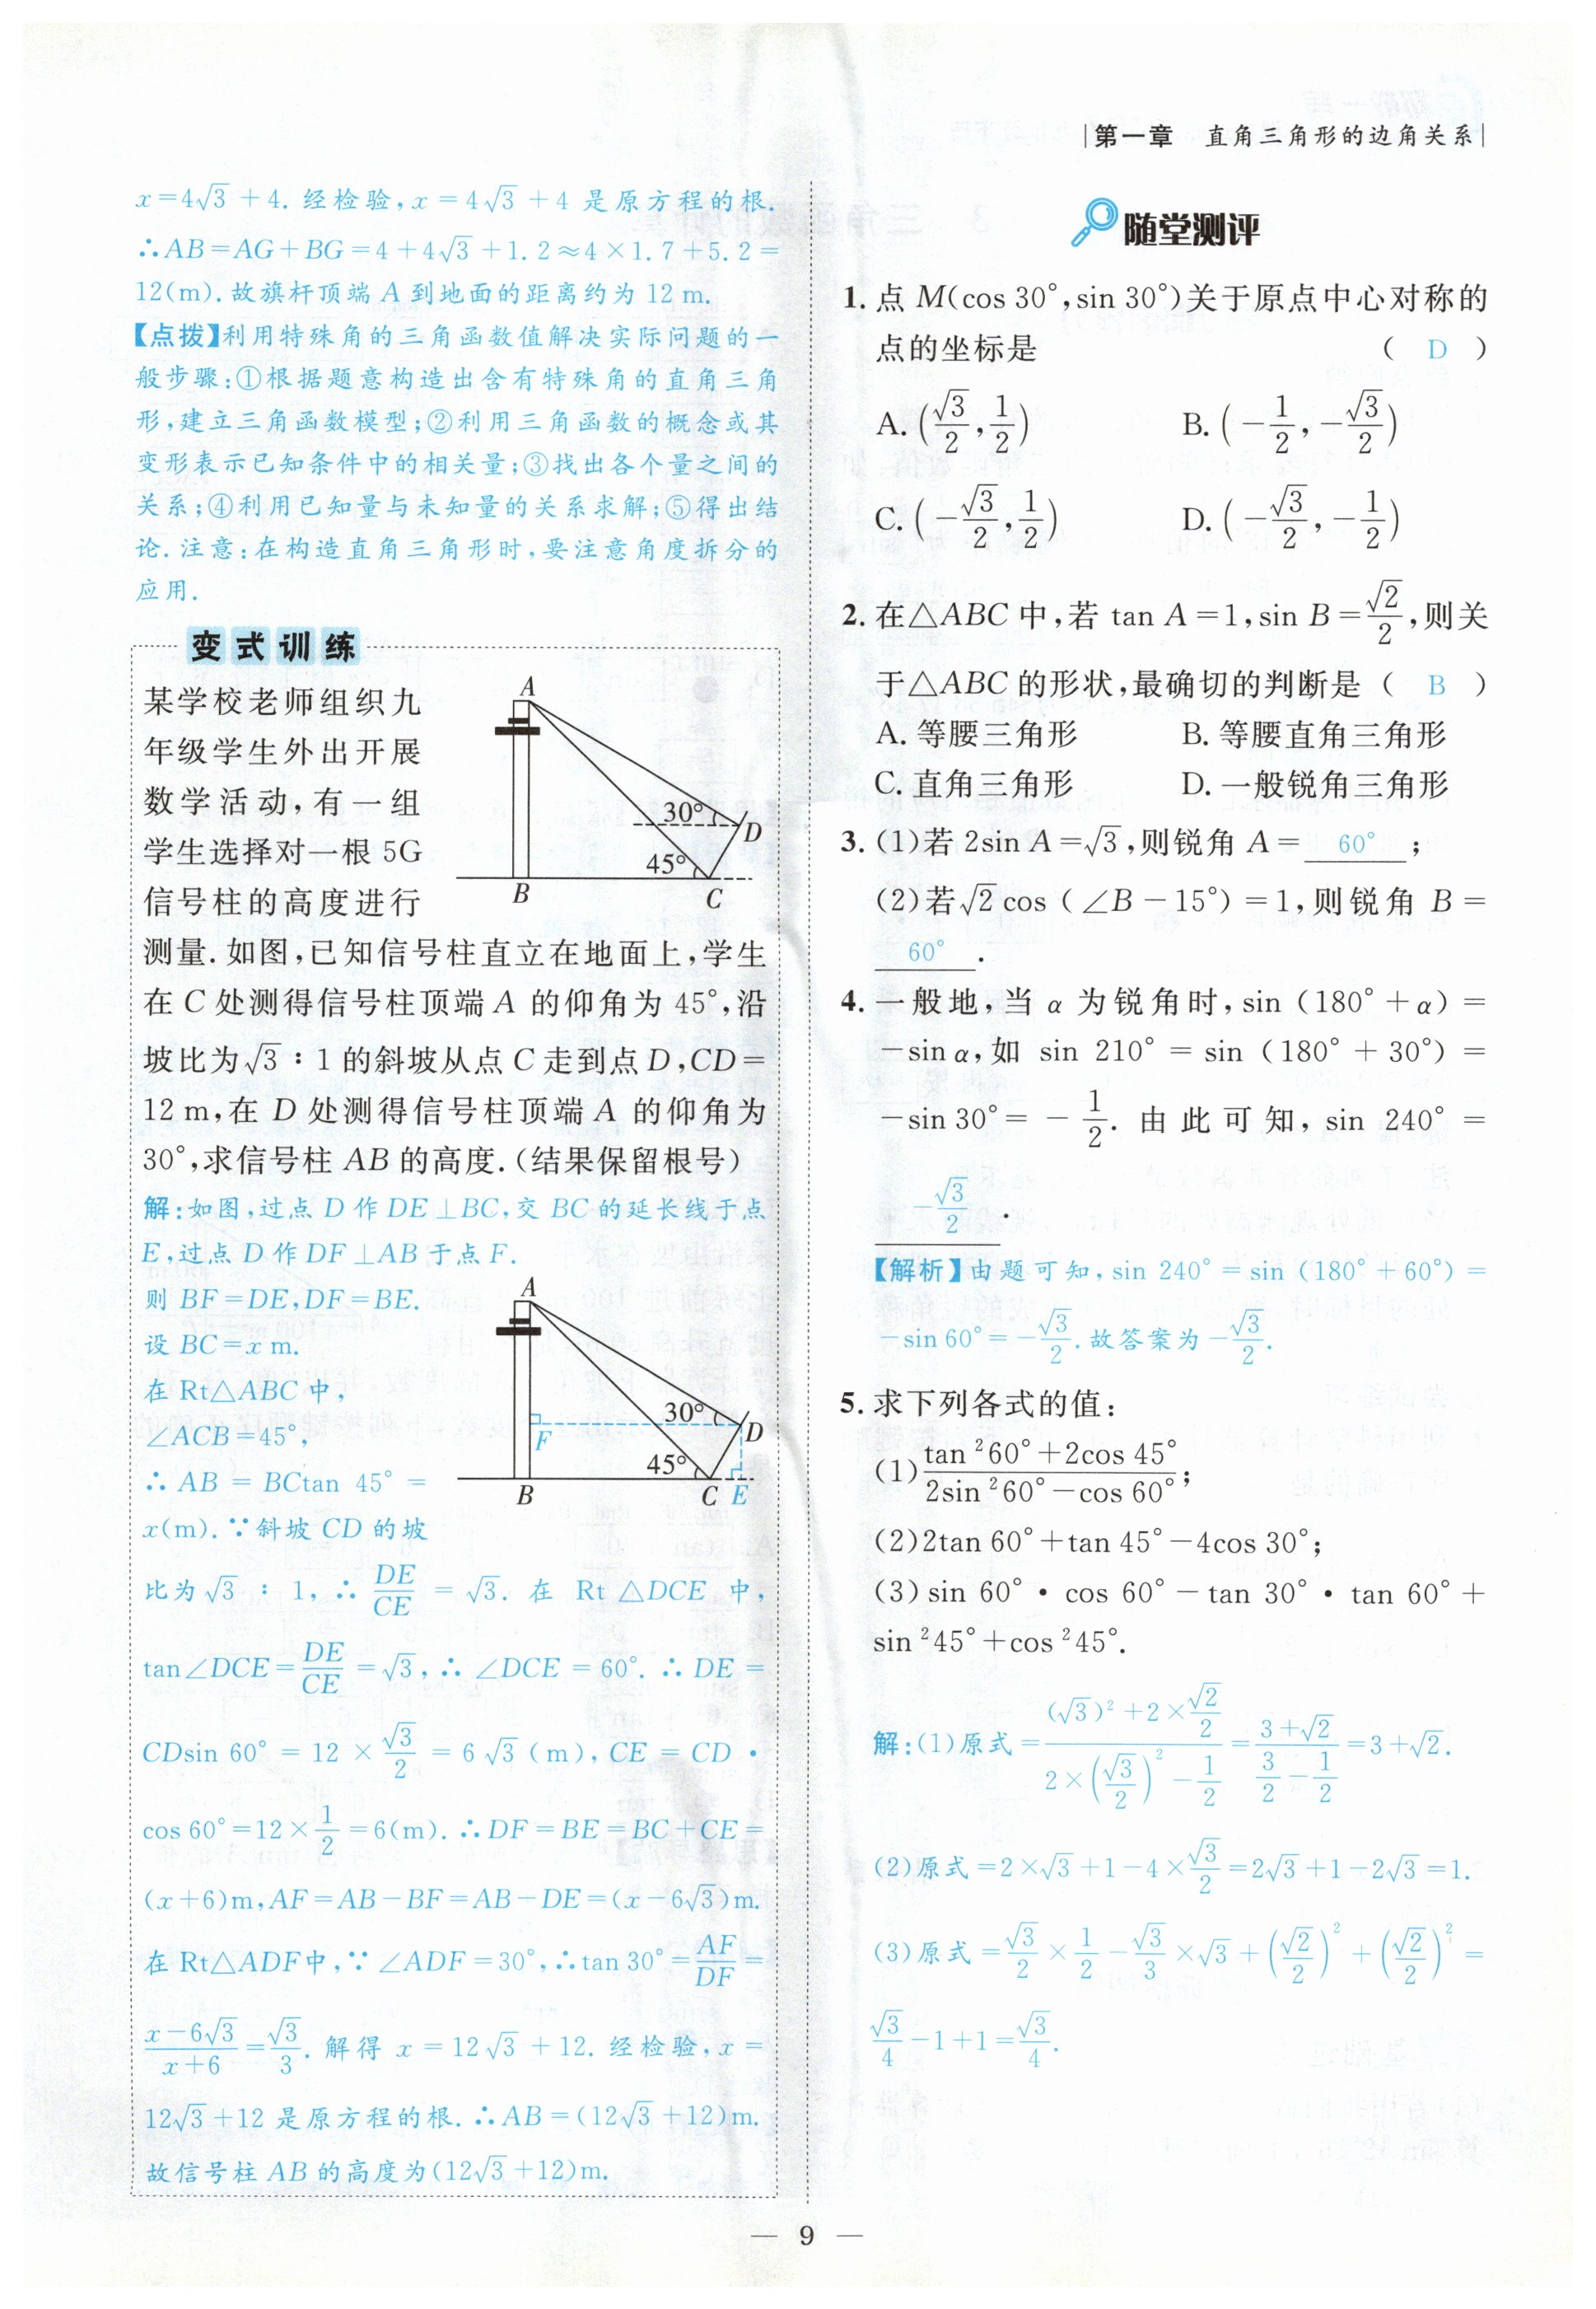 第一章 直角三角形的边角关系
x=4√3+4. 经检验,x=4√3+4 是原方程的根.
∴AB=AG+BG=4+4√3+1.2≈4×1.7+5.2=
12(m). 故旗杆顶端 A 到地面的距离约为 12 m.
【点拨】利用特殊角的三角函数值解决实际问题的一
般步骤:①根据题意构造出含有特殊角的直角三角
形,建立三角函数模型;②利用三角函数的概念或其
变形表示已知条件中的相关量;③找出各个量之间的
关系;④利用已知量与未知量的关系求解;⑤得出结
论. 注意:在构造直角三角形时,要注意角度拆分的
应用.
变式训练
某学校老师组织九
年级学生外出开展
数学活动,有一组
学生选择对一根 5G
信号柱的高度进行
A
30°
D
45°
B
C
测量. 如图,已知信号柱直立在地面上,学生
在 C 处测得信号柱顶端 A 的仰角为 45°,沿
坡比为√3∶1 的斜坡从点 C 走到点 D,CD=
12 m,在 D 处测得信号柱顶端 A 的仰角为
30°,求信号柱 AB 的高度.(结果保留根号)
解:如图,过点 D 作 DE⊥BC,交 BC 的延长线于点
E,过点 D 作 DF⊥AB 于点 F.
则 BF=DE,DF=BE.
设 BC=x m.
在 Rt△ABC 中,
∠ACB=45°,
∴ AB = BCtan 45° =
x(m). ∵斜坡 CD 的坡
A
30°
D
F
45°
B
C
E
比为 √3 ∶ 1, ∴ DE/CE = √3. 在 Rt △DCE 中,
tan∠DCE=DE/CE=√3, ∴ ∠DCE = 60°. ∴ DE =
CDsin 60° = 12 × √3/2 = 6√3 (m), CE = CD ·
cos 60°=12×1/2=6(m). ∴DF=BE=BC+CE=
(x+6)m,AF=AB-BF=AB-DE=(x-6√3)m.
在 Rt△ADF中,∵∠ADF=30°,∴tan 30°=AF/DF=
(x-6√3)/(x+6)=√3/3. 解得 x=12√3+12. 经检验,x=
12√3+12 是原方程的根. ∴AB=(12√3+12)m.
故信号柱 AB 的高度为(12√3+12)m.
随堂测评
1. 点 M(cos 30°,sin 30°)关于原点中心对称的
点的坐标是 ( D )
A. (√3/2,1/2) B. (-1/2,-√3/2)
C. (-√3/2,1/2) D. (-√3/2,-1/2)
2. 在△ABC 中,若 tan A=1,sin B=√2/2,则关
于△ABC 的形状,最确切的判断是 ( B )
A. 等腰三角形 B. 等腰直角三角形
C. 直角三角形 D. 一般锐角三角形
3. (1)若 2sin A=√3,则锐角 A= 60° ;
(2)若√2cos (∠B-15°)=1,则锐角 B=
60° .
4. 一般地,当 α 为锐角时,sin (180°+α)=
-sin α,如 sin 210° = sin (180° + 30°) =
-sin 30°= -1/2. 由此可知,sin 240° =
-√3/2 .
【解析】由题可知,sin 240°=sin (180°+60°)=
-sin 60°=-√3/2. 故答案为-√3/2.
5. 求下列各式的值:
(1)(tan²60°+2cos 45°)/(2sin²60°-cos 60°);
(2)2tan 60°+tan 45°-4cos 30°;
(3)sin 60° · cos 60° - tan 30° · tan 60° +
sin²45°+cos²45°.
解:(1)原式=((√3)²+2×√2/2)/(2×(√3/2)²-1/2)=(3+√2)/(3/2-1/2)=3+√2.
(2)原式=2×√3+1-4×√3/2=2√3+1-2√3=1.
(3)原式=√3/2×1/2-√3/3×√3+(√2/2)²+(√2/2)²=
√3/4-1+1=√3/4.
— 9 —